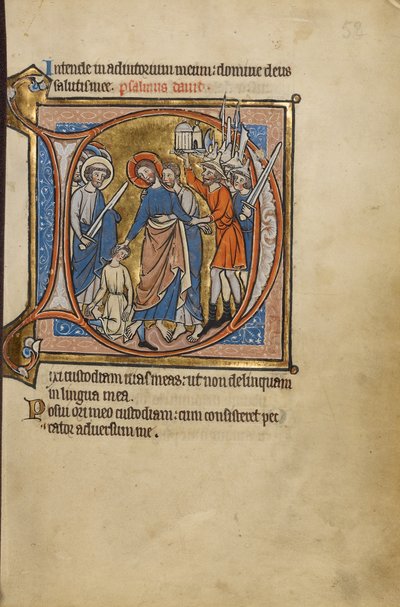 52
Intende in adiutorium meum: domine deus
salutis mee. psalmus dauit
D
ixi custodiam uias meas: ut non delinquam
in lingua mea.
Posui ori meo custodiam: cum consisteret pec
cator aduersum me.